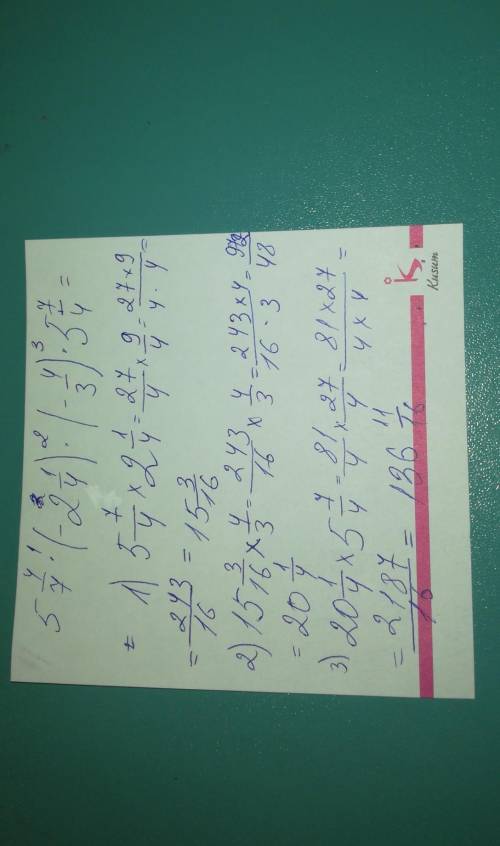 5 4/7 · (-2 1/4) · (-4/3) · 5 7/4 =
1) 5 7/4 × 2 1/4 = 27/4 × 9/4 = 27×9/4·4 =
= 243/16 = 15 3/16
2) 15 3/16 × 4/3 = 243/16 × 4/3 = 243×4/16·3 = 972/48
= 20 1/4
3) 20 1/4 × 5 7/4 = 81/4 × 27/4 = 81×27/4×4 =
= 2187/16 = 136 11/16
Kusum